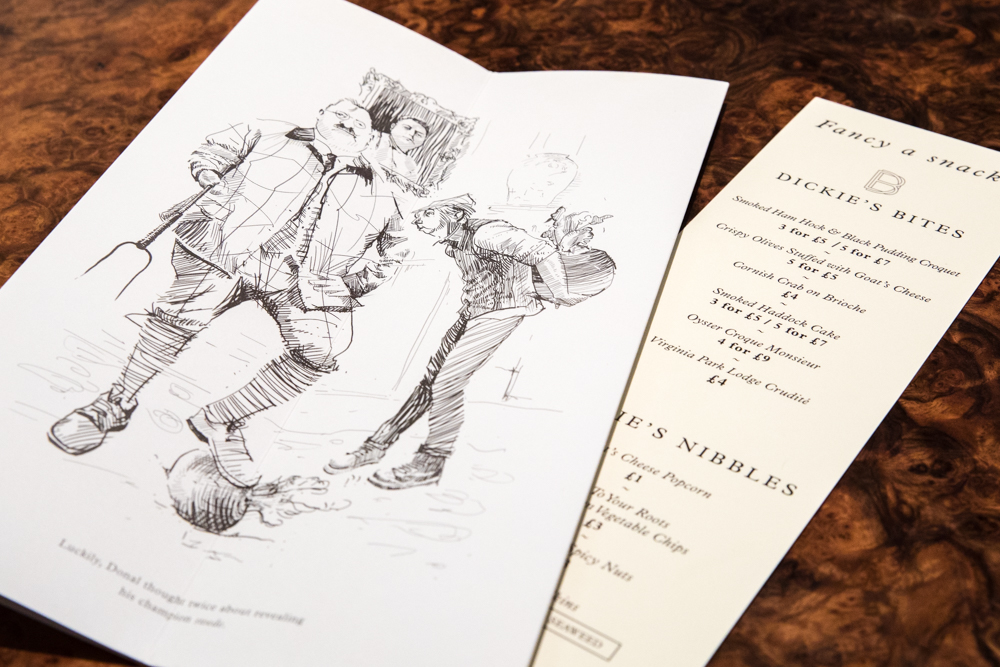 Luckily, Donal thought twice about revealing
his champion swede.
Fancy a snack
B
DICKIE'S BITES
Smoked Ham Hock & Black Pudding Croquet
3 for £5 / 5 for £7
~
Crispy Olives Stuffed with Goat's Cheese
3 for £5
~
Cornish Crab on Brioche
£4
~
Smoked Haddock Cake
3 for £5 / 5 for £7
~
Oyster Croque Monsieur
4 for £9
~
Virginia Park Lodge Crudité
£4
IE'S NIBBLES
's Cheese Popcorn
£1
~
To Your Roots
Vegetable Chips
£3
~
picy Nuts
SEAWEED